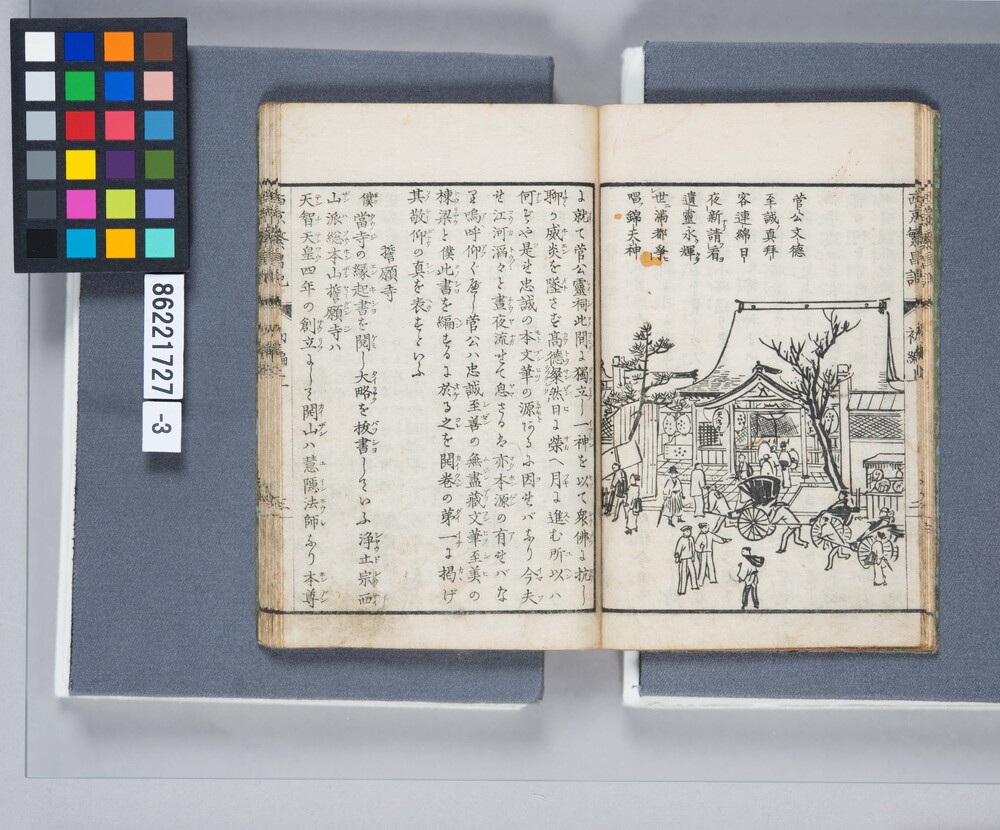 菅公文徳
至誠真拜
客連綿日
夜新請看
遺靈永輝
世滿都爭
唱錦天神
に就て菅公靈祠此間に獨立し一神を以て衆佛に抗し
聊の威炎を墜さず高德粲然日に榮へ月に進む所以ハ
何ぞや是せ忠誠の本文華の源あるに因せバなり今夫
せ江河滔々と晝夜流せて息まざる亦本源の有せバな
り嗚呼仰ぐ可し菅公ハ忠誠至善の無盡藏文華至美の
棟梁と僕此書を編するに於る之を開卷の第一に掲げ
其敬仰の真を表すといふ
誓願寺
僕當寺の縁起書を閲し大略を抜書していふ浄土宗西
山派総本山誓願寺ハ
天智天皇四年の創立にして開山ハ慧隱法師なり本尊
西京繁昌記
初編
86221727
-3